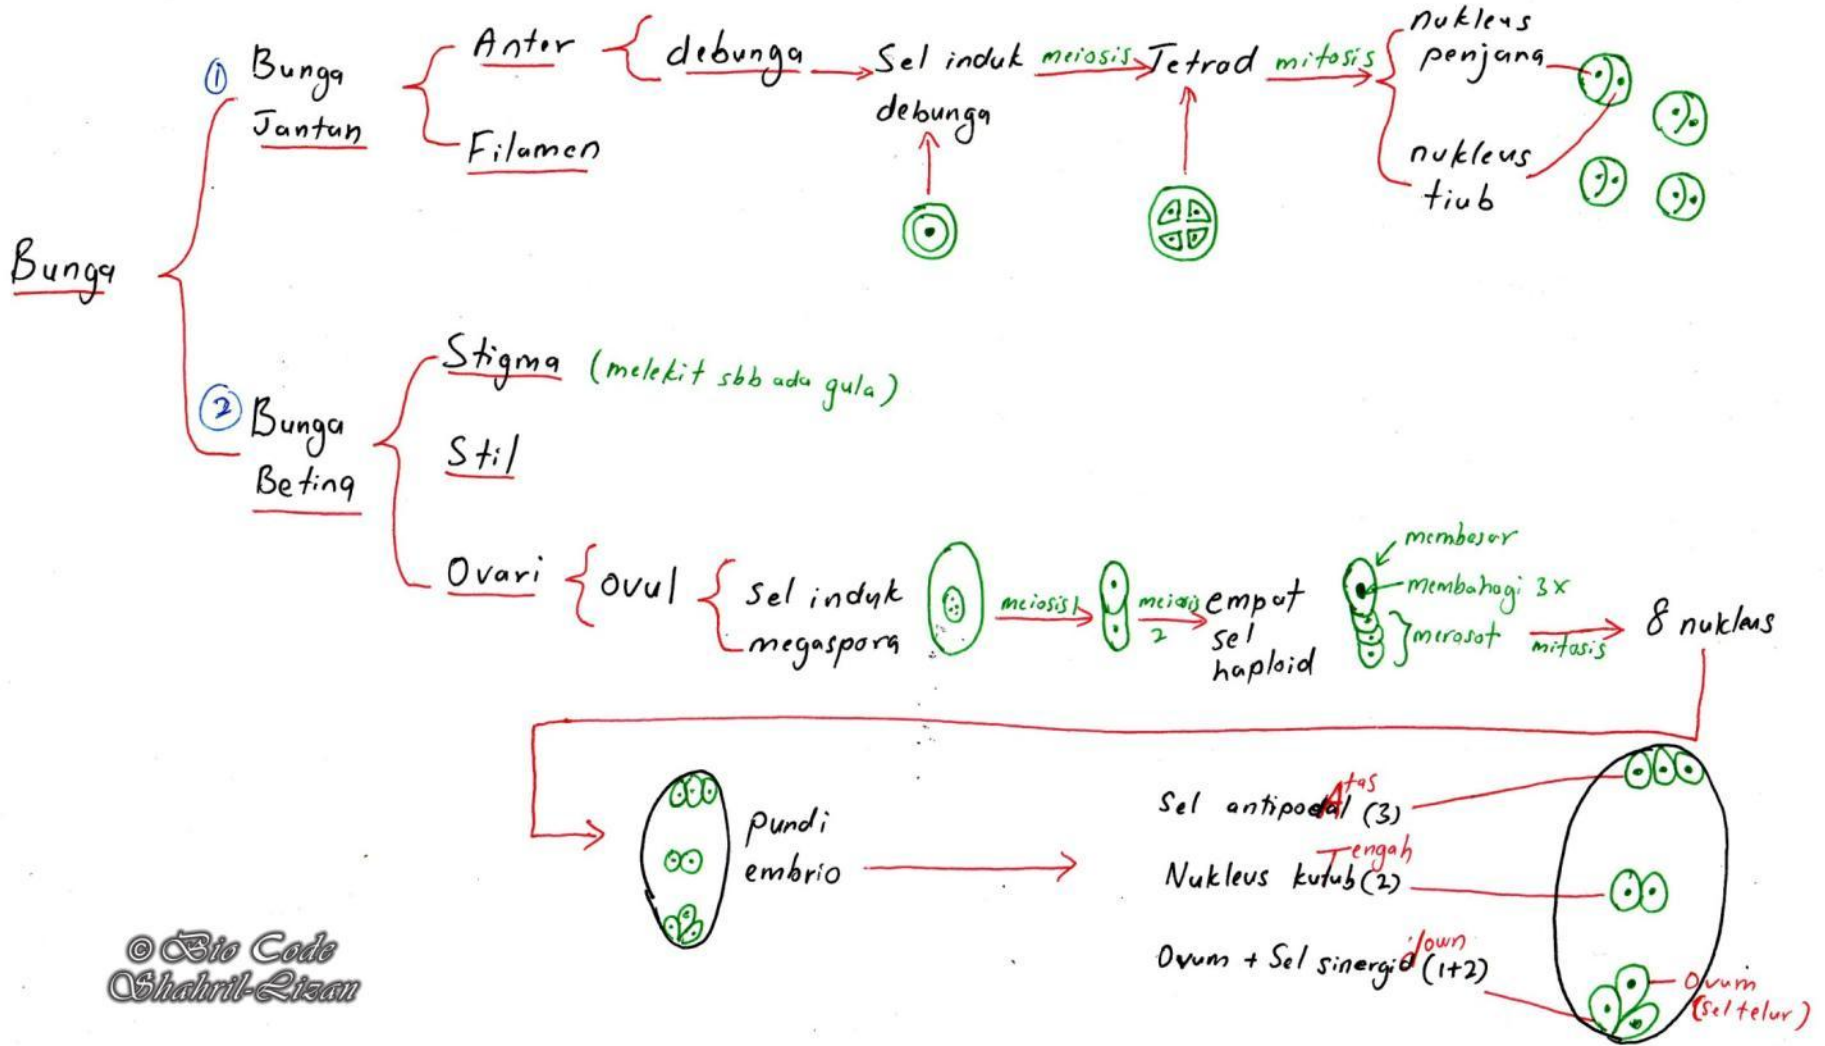 Bunga
① Bunga
Jantan
Anter
Filamen
debunga
Sel induk
debunga
meiosis
Tetrad
mitosis
nukleus
penjana
nukleus
tiub
② Bunga
Betina
Stigma (melekit sbb ada gula)
Stil
Ovari
ovul
sel induk
megaspora
meiosis 1
meiosis
2
empat
sel
haploid
membesar
membahagi 3x
merosot
mitosis
8 nukleus
pundi
embrio
Atas
Sel antipodal (3)
Tengah
Nukleus kutub (2)
down
Ovum + Sel sinergid (1+2)
Ovum
(sel telur)
© Bio Code
Shahril-Lizan